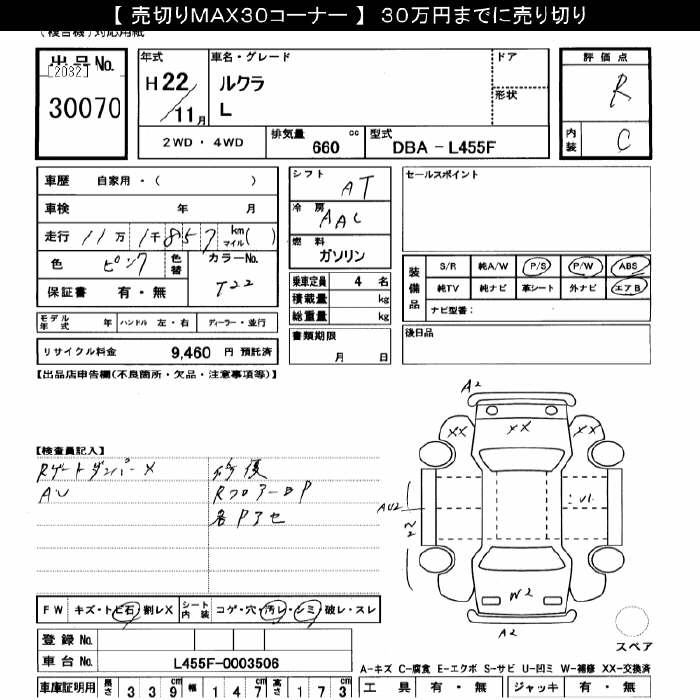 【 売切りMAX30コーナー 】 30万円までに売り切り
(複合機)対応用紙
出品 No.
[2032]
30070
年式
H22
11月
車名・グレード
ルクラ
L
ドア
形状
評価点
R
内装
C
2WD ・ 4WD
排気量 660 cc
型式 DBA － L455F
車歴 自家用・( )
車検 年 月
走行 11万 1千857 km マイル( )
色 ピンク
色替
カラーNo. T22
保証書 有 ・ 無
シフト AT
冷房 AAC
燃料 ガソリン
乗車定員 4 名
積載量 kg
総重量 kg
セールスポイント
装備品
S/R 純A/W P/S P/W ABS
純TV 純ナビ 革シート 外ナビ エアB
ナビ型番：
モデル年式 年 ハンドル 左・右 ディーラー・並行
書類期限 月 日
後日品
リサイクル料金 9,460 円 預託済
【出品店申告欄(不良箇所・欠品・注意事項等)】
【検査員記入】
Rゲートダンパー×
AU
修復
RフロアーBP
各Pアセ
A2
XX XX XX
U1
AU2
W2
A2
スペア
FW キズ・トビ石・割レX
シート内装 コゲ・穴・汚レ・シミ・破レ・スレ
登録 No.
車台 No. L455F-0003506
A－キズ C－腐食 E－エクボ S－サビ U－凹ミ W－補修 XX－交換済
車庫証明用 長さ 339cm 幅 147cm 高さ 173cm
工具 有 ・ 無 ジャッキ 有 ・ 無